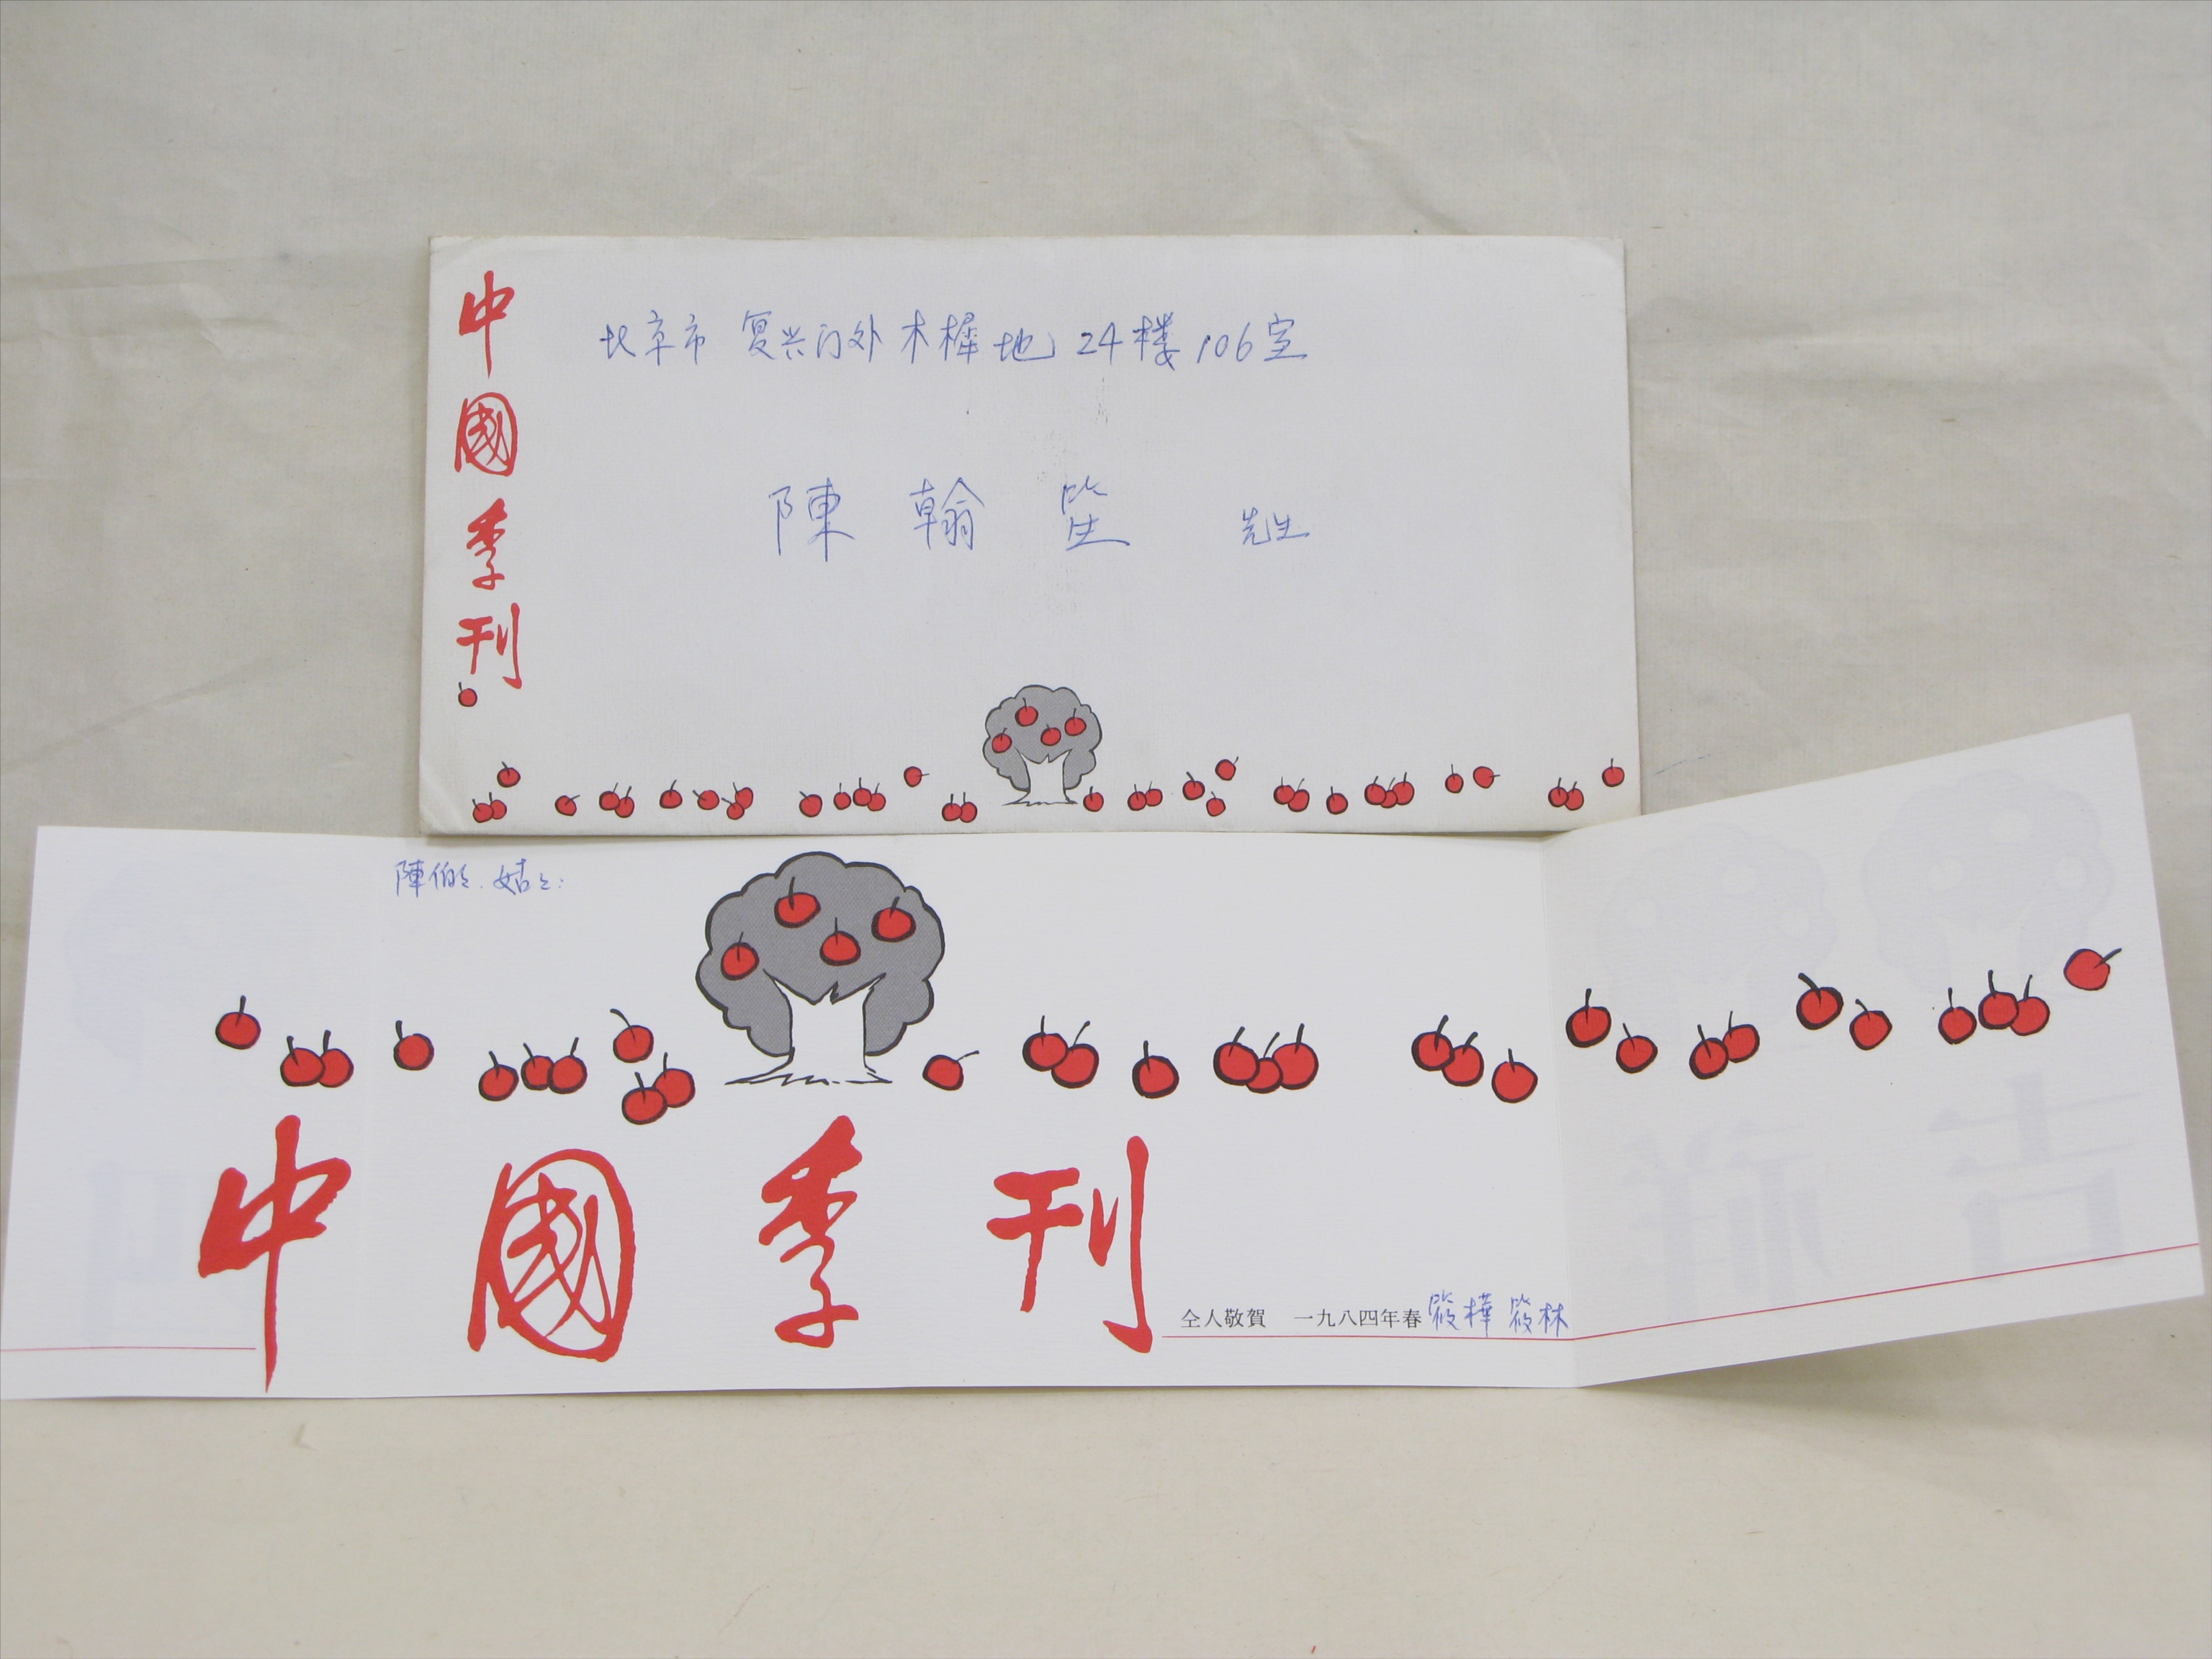 中國季刊
北京市 复兴门外木樨地 24楼106室
陳翰笙 先生
陳伯伯、姑姑:
中國季刊
仝人敬賀 一九八四年春 筱樺 筱林